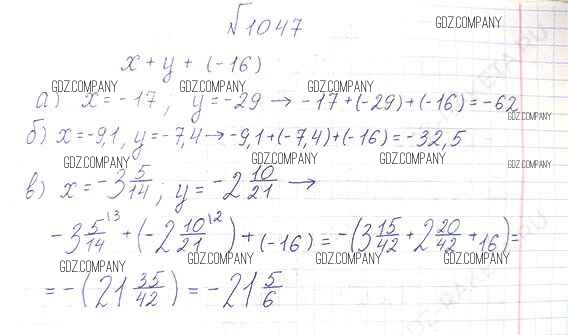 √1047
GDZ.COMPANY
x + y + (-16)
GDZ.COMPANY GDZ.COMPANY GDZ.COMPANY
а) x = -17, y = -29 → -17 + (-29) + (-16) = -62
GDZ.COMPANY
б) x = -9,1, y = -7,4 → -9,1 + (-7,4) + (-16) = -32,5
GDZ.COMPANY GDZ.COMPANY GDZ.COMPANY GDZ.COMPANY
в) x = -3 5/14; y = -2 10/21 →
GDZ.COMPANY GDZ.COMPANY GDZ.COMPANY
-3 5/14 \3 + (-2 10/21 \2) + (-16) = -(3 15/42 + 2 20/42 + 16) =
GDZ.COMPANY GDZ.COMPANY GDZ.COMPANY
= -(21 35/42) = -21 5/6